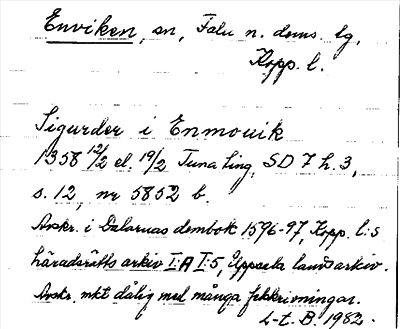 Enviken, sn, Falu n. doms. lg,
Kopp. l.
Sigurder i Enmouik
1358 12/2 el. 19/2 Tuna ting, SD 7 h. 3,
s. 12, nr 5852 b.
Avskr. i Dalarnas dombok 1596-97, Kopp. l:s
häradsrätts arkiv I:A I:5, Uppsala landsarkiv.
Avskr. mkt dålig med många felskrivningar.
L-t. B. 1982.